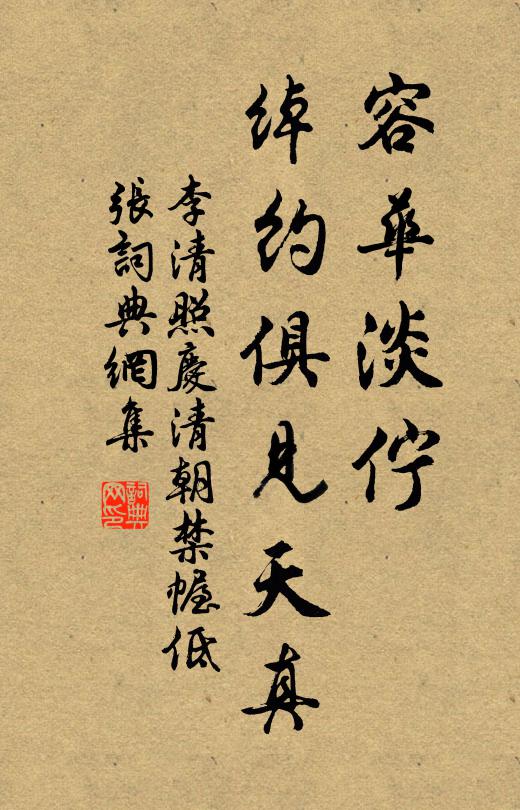 容華淡佇
綽約俱見天真
李清照慶清朝禁幄低
張詞典網集
詞典网印